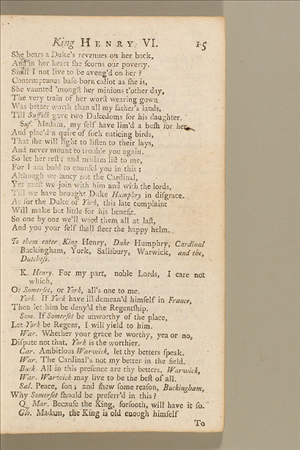 King HENRY VI. 15
She bears a Duke's revenues on her back,
And in her heart she scorns our poverty.
Shall I not live to be aveng'd on her?
Contemptuous base-born callot as she is,
She vaunted 'mongst her minions t'other day,
The very train of her worst wearing gown
Was better worth than all my father's lands,
Till Suffolk gave two Dukedoms for his daughter.
Suf. Madam, my self have lim'd a bush for her,
And plac'd a quire of such enticing birds,
That she will light to listen to their lays,
And never mount to trouble you again.
So let her rest; and madam list to me,
For I am bold to counsel you in this;
Although we fancy not the Cardinal,
Yet must we join with him and with the lords,
Till we have brought Duke Humphry in disgrace.
As for the Duke of York, this late complaint
Will make but little for his benefit.
So one by one we'll weed them all at last,
And you your self shall steer the happy helm.
To them enter King Henry, Duke Humphry, Cardinal
Buckingham, York, Salisbury, Warwick, and the
Dutchess.
K. Henry. For my part, noble Lords, I care not
which,
Or Somerset, or York, all's one to me.
York. If York have ill demean'd himself in France,
Then let him be deny'd the Regentship.
Som. If Somerset be unworthy of the place,
Let York be Regent, I will yield to him.
War. Whether your grace be worthy, yea or no,
Dispute not that, York is the worthier.
Car. Ambitious Warwick, let thy betters speak.
War. The Cardinal's not my better in the field.
Buck. All in this presence are thy betters, Warwick,
War. Warwick may live to be the best of all.
Sal. Peace, son; and shew some reason, Buckingham,
Why Somerset should be preferr'd in this?
Q. Mar. Because the King, forsooth, will have it so.
Glo. Madam, the King is old enough himself
To